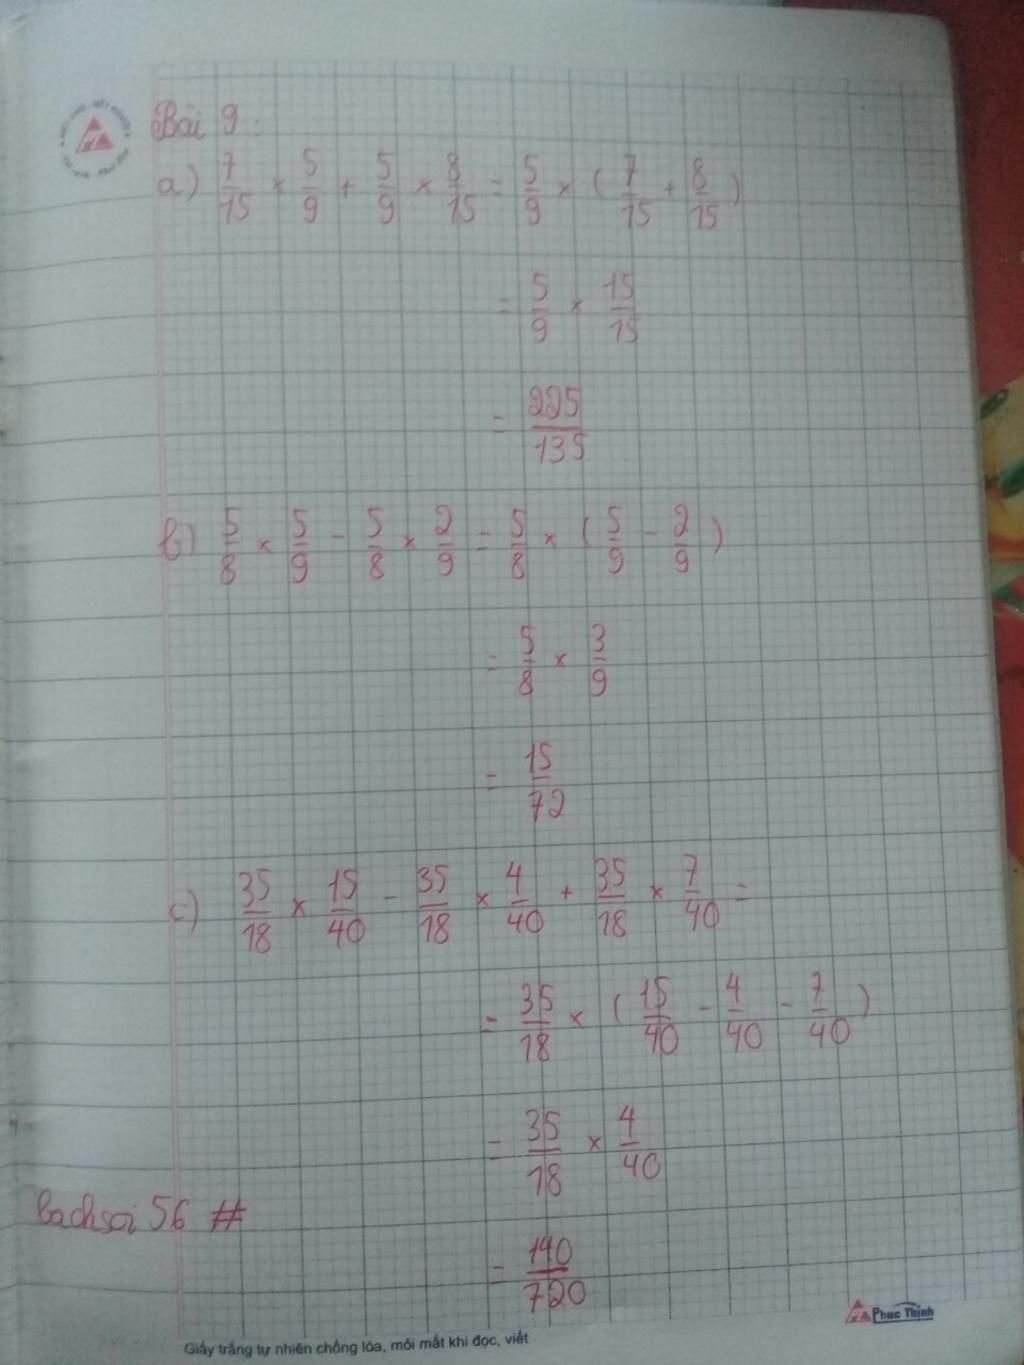 Bài 9.
a) 7/15 × 5/9 + 5/9 × 8/15 = 5/9 × ( 7/15 + 8/15 )
= 5/9 × 15/15
= 225/135
b) 5/8 × 5/9 - 5/8 × 2/9 = 5/8 × ( 5/9 - 2/9 )
= 5/8 × 3/9
= 15/72
c) 35/18 × 15/40 - 35/18 × 4/40 + 35/18 × 7/40 =
= 35/18 × ( 15/40 - 4/40 - 7/40 )
= 35/18 × 4/40
bachsoi 56 #
= 140/720
Phuc Thinh
Giấy trắng tự nhiên chống lóa, mỏi mắt khi đọc, viết